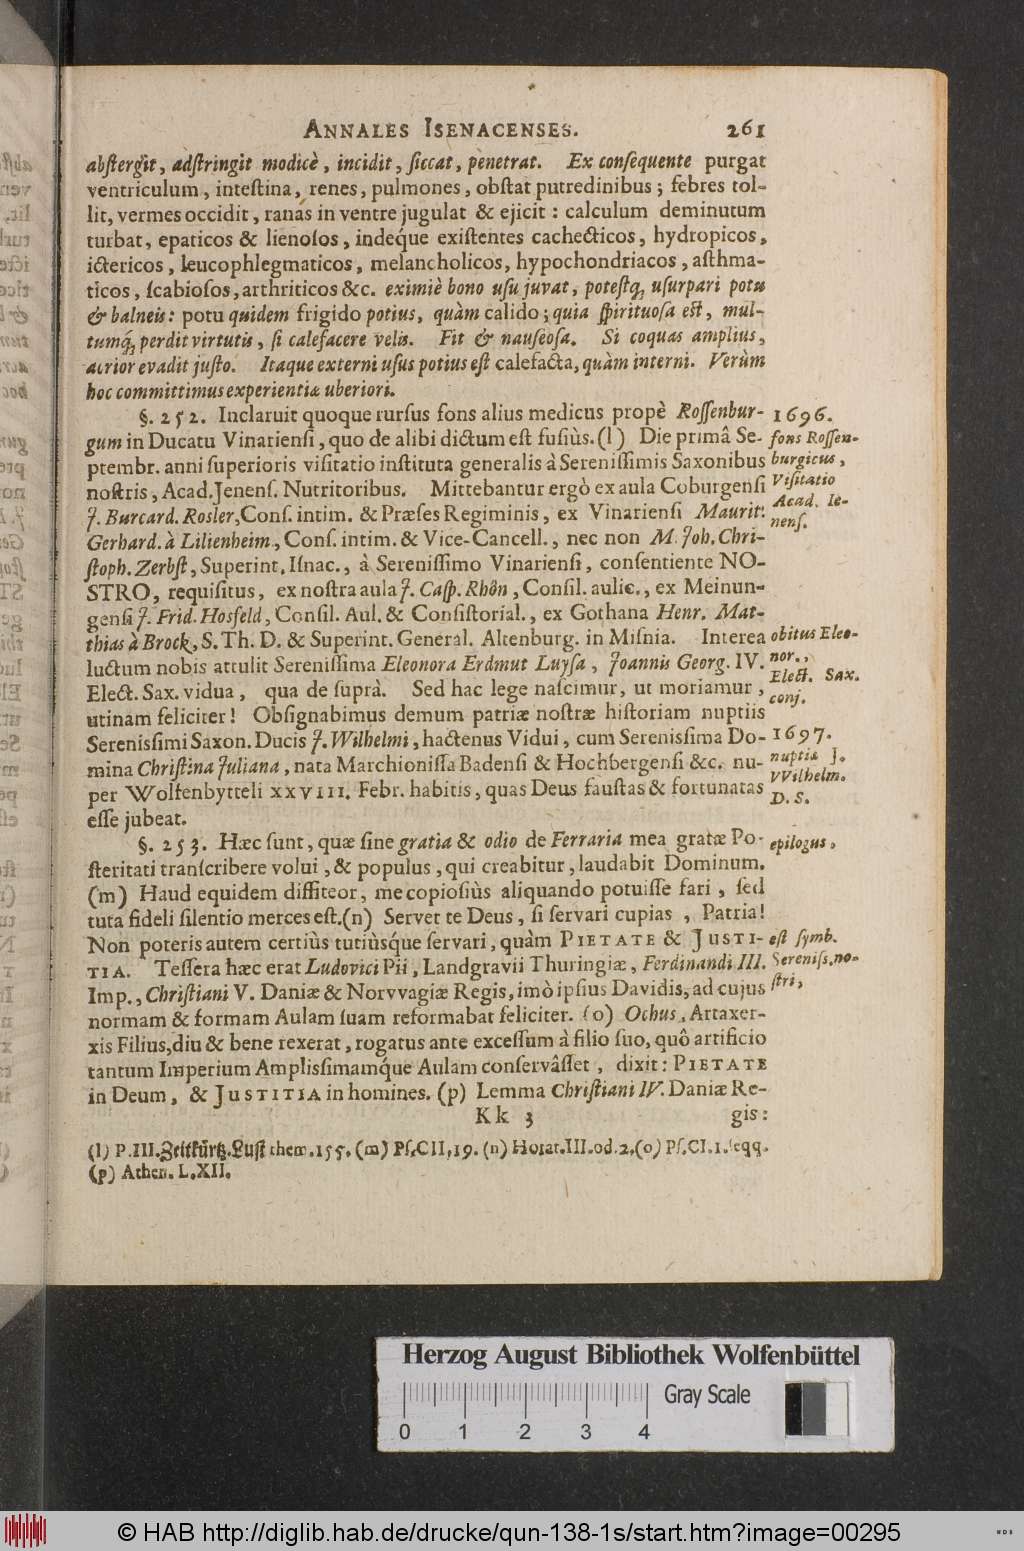 ANNALES ISENACENSES. 261
abſtergit, adſtringit modicè, incidit, ſiccat, penetrat. Ex conſequente purgat
ventriculum, inteſtina, renes, pulmones, obſtat putredinibus; febres tol-
lit, vermes occidit, ranas in ventre jugulat & ejicit: calculum deminutum
turbat, epaticos & lienoſos, indeq́ue exiſtentes cachecticos, hydropicos,
ictericos, leucophlegmaticos, melancholicos, hypochondriacos, aſthma-
ticos, ſcabioſos, arthriticos &c. eximiè bono uſu juvat, poteſtq́; uſurpari potu
& balneis: potu quidem frigido potius, quàm calido; quia ſpirituoſa eſt, mul-
tumq́; perdit virtutis, ſi calefacere velis. Fit & nauſeoſa. Si coquas amplius,
acrior evadit juſto. Itaque externi uſus potius eſt calefacta, quàm interni. Verùm
hoc committimus experientiæ uberiori.
§. 252. Inclaruit quoque rurſus fons alius medicus propè Roſſenbur-
gum in Ducatu Vinarienſi, quo de alibi dictum eſt fuſiùs. (l) Die primâ Se-
ptembr. anni ſuperioris viſitatio inſtituta generalis à Sereniſſimis Saxonibus
noſtris, Acad. Jenenſ. Nutritoribus. Mittebantur ergò ex aula Coburgenſi
J. Burcard. Rosler, Conſ. intim. & Præſes Regiminis, ex Vinarienſi Maurit.
Gerhard. à Lilienheim., Conſ. intim. & Vice-Cancell., nec non M. Joh. Chri-
ſtoph. Zerbſt, Superint. Iſnac., à Sereniſſimo Vinarienſi, conſentiente NO-
STRO, requiſitus, ex noſtra aula J. Caſp. Rhôn, Conſil. aulic., ex Meinun-
genſi J. Frid. Hosfeld, Conſil. Aul. & Conſiſtorial., ex Gothana Henr. Mat-
thias à Brock, S. Th. D. & Superint. General. Altenburg. in Miſnia. Interea
luctum nobis attulit Sereniſſima Eleonora Erdmut Luyſa, Joannis Georg. IV.
Elect. Sax. vidua, qua de ſuprà. Sed hac lege naſcimur, ut moriamur,
utinam feliciter! Obſignabimus demum patriæ noſtræ hiſtoriam nuptiis
Serenisſimi Saxon. Ducis J. Wilhelmi, hactenus Vidui, cum Serenisſima Do-
mina Chriſtina Juliana, nata Marchioniſſa Badenſi & Hochbergenſi &c. nu-
per Wolfenbytteli XXVIII. Febr. habitis, quas Deus fauſtas & fortunatas
eſſe jubeat.
§. 253. Hæc ſunt, quæ ſine gratia & odio de Ferraria mea gratæ Po-
ſteritati tranſcribere volui, & populus, qui creabitur, laudabit Dominum.
(m) Haud equidem diffiteor, me copioſiùs aliquando potuiſſe fari, ſed
tuta fideli ſilentio merces eſt. (n) Servet te Deus, ſi ſervari cupias, Patria!
Non poteris autem certiùs tutiùsq́ue ſervari, quàm PIETATE & JUSTI-
TIA. Teſſera hæc erat Ludovici Pii, Landgravii Thuringiæ, Ferdinandi III.
Imp., Chriſtiani V. Daniæ & Norvvagiæ Regis, imò ipſius Davidis, ad cujus
normam & formam Aulam ſuam reformabat feliciter. (o) Ochus, Artaxer-
xis Filius, diu & bene rexerat, rogatus ante exceſſum à filio ſuo, quô artificio
tantum Imperium Amplisſimamq́ue Aulam conſervâſſet, dixit: PIETATE
in Deum, & JUSTITIA in homines. (p) Lemma Chriſtiani IV. Daniæ Re-
Kk 3 gis:
1696.
fons Roſſen-
burgicus,
Viſitatio
Acad. Ie-
nenſ.
obitus Eleo-
nor.,
Elect. Sax.
conj.
1697.
nuptiæ J.
VVilhelm.
D. S.
epilogus,
eſt ſymb.
Sereniſs. no-
ſtri,
(l) P. III. Zeitkürtz. Luſt them. 155. (m) Pſ. CII, 19. (n) Horat. III. od. 2. (o) Pſ. CI. 1. ſeqq.
(p) Athen. L. XII.
Herzog August Bibliothek Wolfenbüttel
Gray Scale
0 1 2 3 4
© HAB http://diglib.hab.de/drucke/qun-138-1s/start.htm?image=00295
WDB